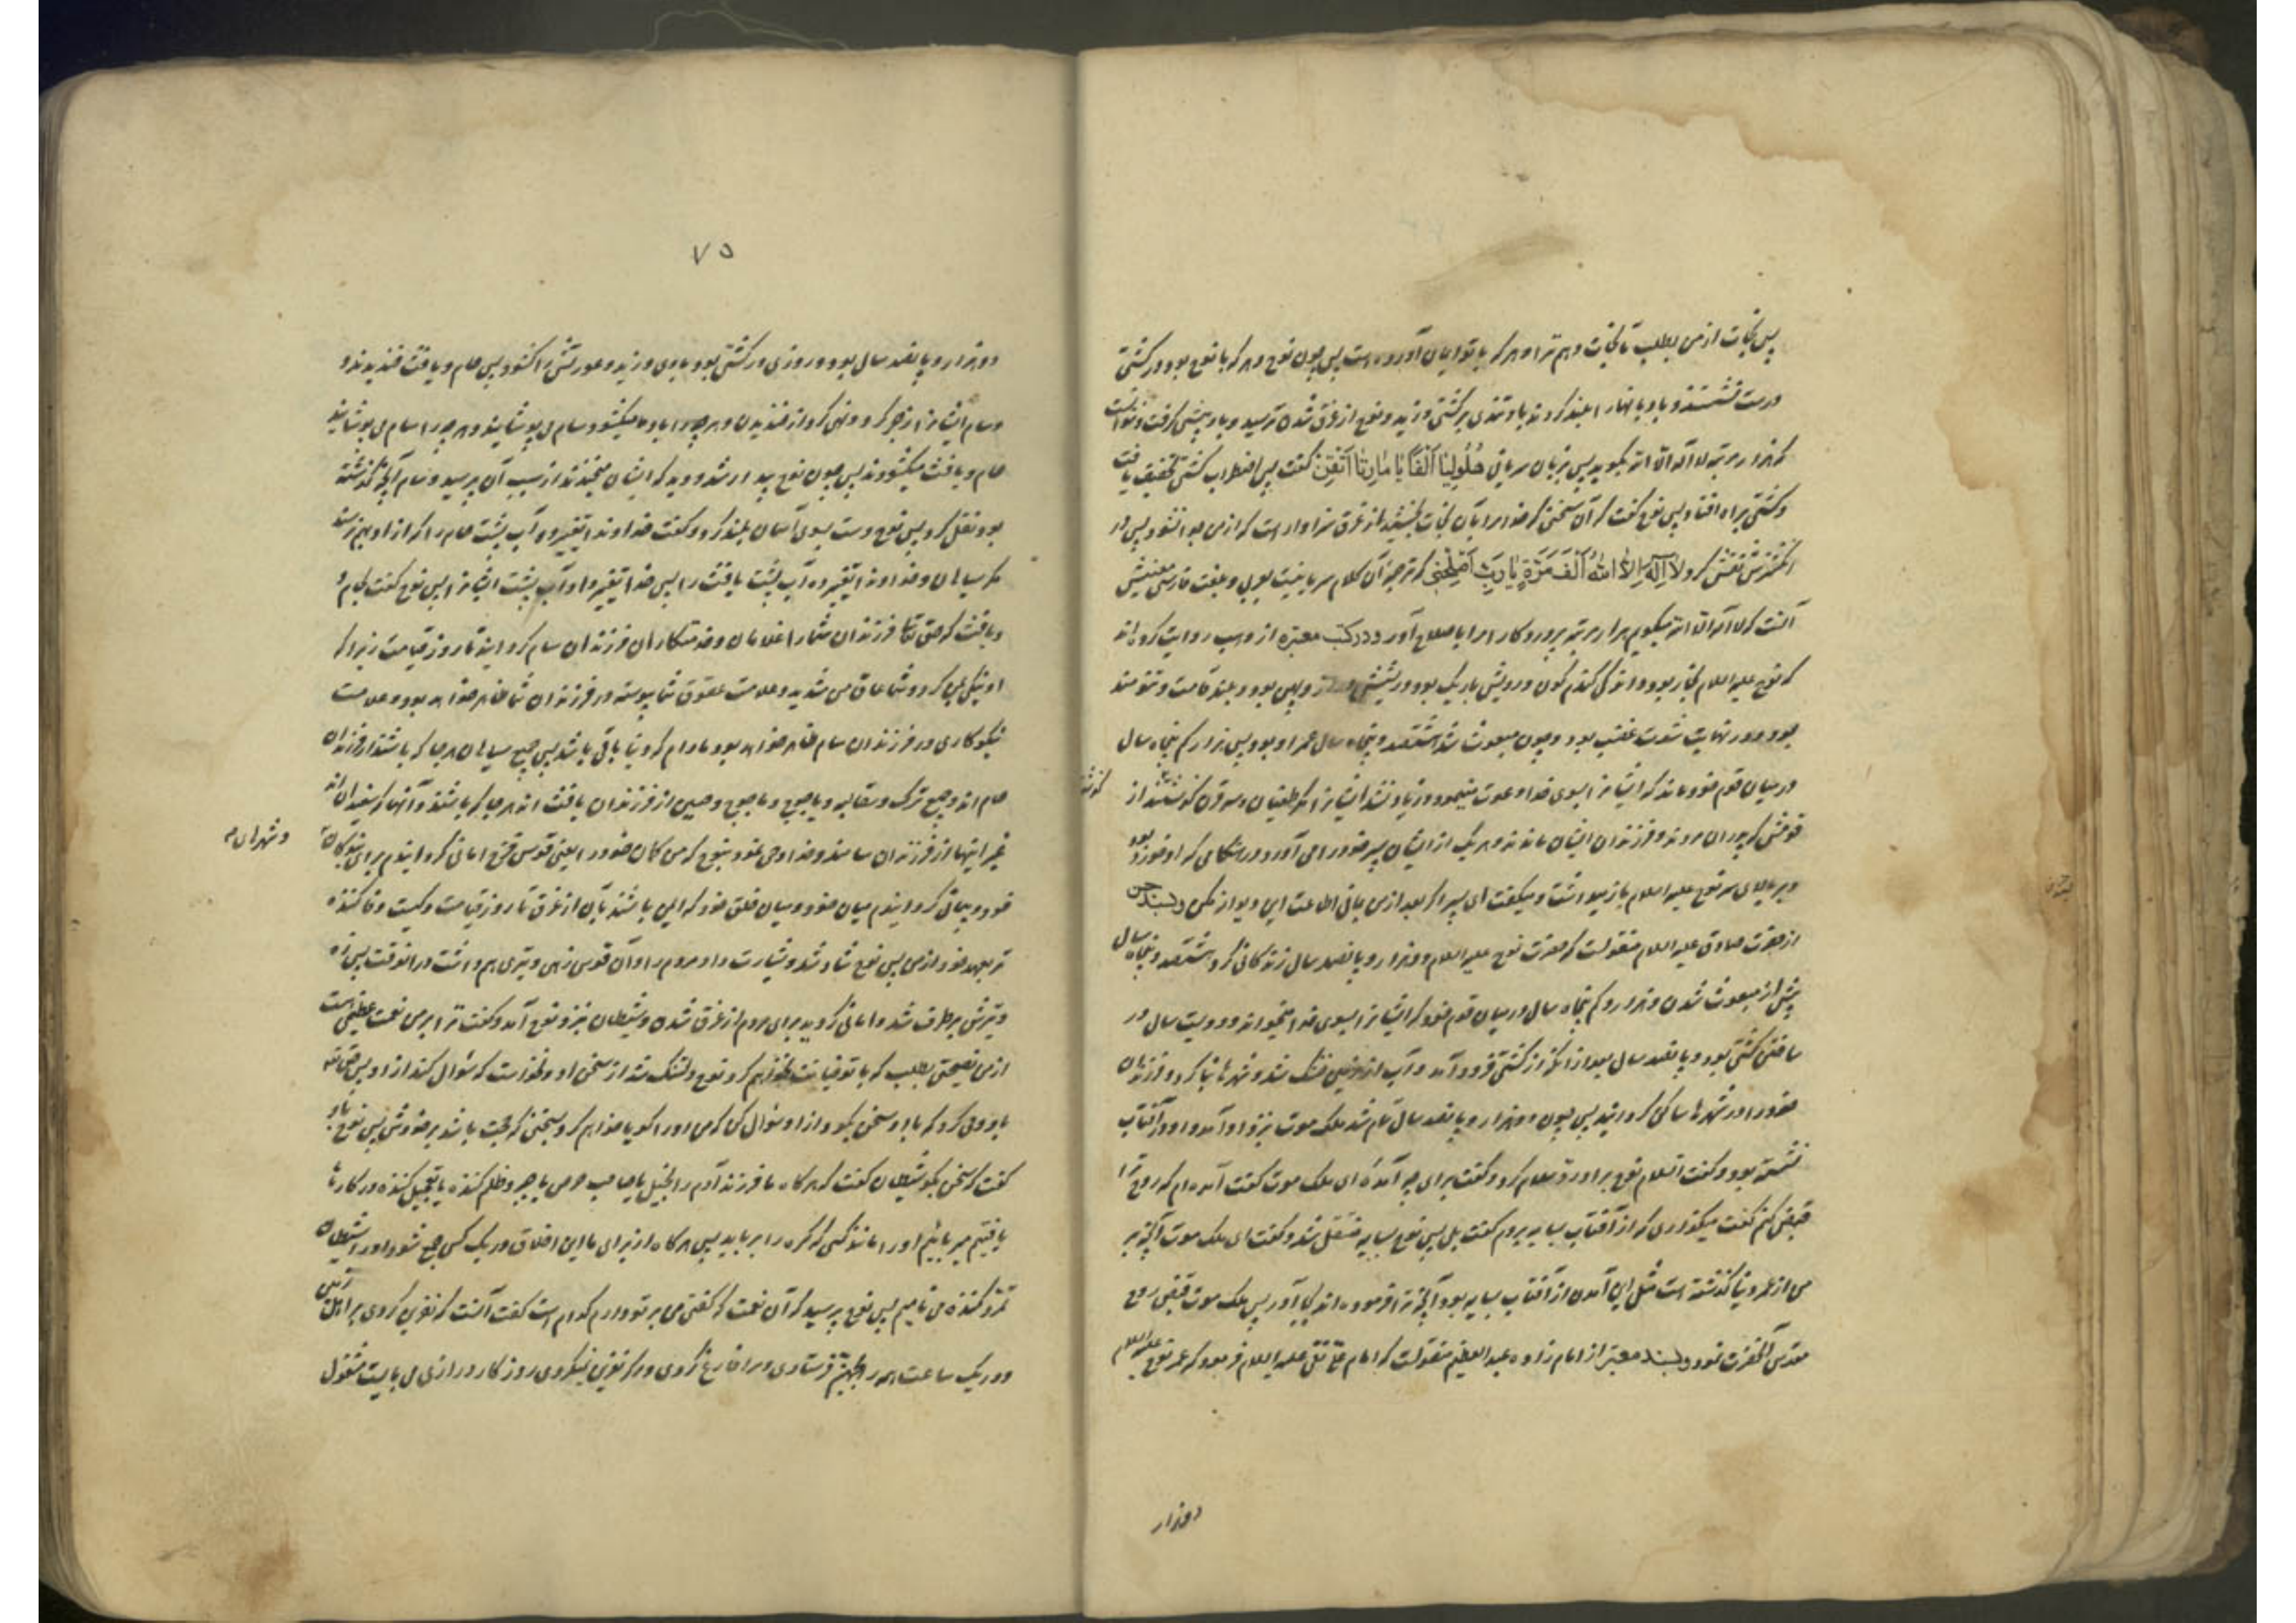 پس نجات از من بطلب تا نجات دهم ترا و هر که با تو ایمان آورده است پس چون نوح و هر که با نوح بود در کشتی
درست نشستند و بادبانها را بلند کردند باد تندی بر کشتی وزید و نوح از غرق شدن ترسید و باد پیشی گرفت و نتوانست
که هزار مرتبه لا اله الا الله بگوید پس بزبان سریانی هُلُولِیٰا اَلْفاً یٰا مٰارِیٰا اَتْقِنْ گفت پس اضطراب کشتی تخفیف یافت
و کشتی براه افتاد پس نوح گفت که آن سخنی که خدا مرا بآن نجات بخشید از غرق سزاوار است که از من جدا نشود پس در
انگشترش نقش کرد لاٰ اِلٰهَ اِلاَّ اللّٰهُ اَلْفَ مَرَّةٍ یٰا رَبِّ اَصْلِحْنی که ترجمهٔ آن کلام سریانیست بعربی و بلغت فارسی معنیش
آنست که لا اله الا الله میگویم هزار مرتبه پروردگارا مرا باصلاح آور و در کتب معتبره از وهب روایت کرده‌اند
که نوح علیه السلام نجار بود و اندکی گندم گون و رویش باریک بود و ریشش دراز و پهن بود و بلند قامت و تنومند
بود و در نهایت شدت غضب بود و چون مبعوث شد هشتصد و پنجاه سال عمر او بود پس هزار کم پنجاه سال
در میان قوم خود ماند که ایشانرا بسوی خدا دعوت مینمود و زیاد نشد ایشانرا مگر طغیان و سه قرن گذشتند از
قومش که پدران مردند و فرزندان ایشان ماندند و هر یک از ایشان پسر خود را می‌آورد در هنگامی که او خورد بود
و بر بالای سر نوح علیه السلام باز میداشت و میگفت ای پسر اگر بعد از من بمانی اطاعت این دیوانه مکن و بسند حسن
از حضرت صادق علیه السلام منقولست که حضرت نوح علیه السلام دو هزار و پانصد سال زندگانی کرد هشتصد و پنجاه سال
پیش از مبعوث شدن و هزار کم پنجاه سال در میان قوم خود که ایشانرا بسوی خدا میخواند و دویست سال در
ساختن کشتی بود و پانصد سال بعد از آنکه از کشتی فرود آمد و آب از زمین خشک شد و شهرها بنا کرد و فرزندان
خود را در شهرها ساکن گردانید پس چون دو هزار و پانصد سال تمام شد ملک موت بنزد او آمد و او در آفتاب
نشسته بود و گفت السلام نوح بر او رد سلام کرد و گفت برای چه آمدهٔ ای ملک موت گفت آمده‌ام که روح ترا
قبض کنم گفت میگذاری که از آفتاب بسایه بروم گفت بلی پس نوح بسایه منتقل شد و گفت ای ملک موت آنچه بر
من از عمر دنیا گذشته است مثل این آمدن از آفتاب بسایه بود آنچه ترا فرموده‌اند بجا آور پس ملک موت قبض روح
مقدس آنحضرت نمود و بسند معتبر از امام زاده عبد العظیم منقولست که امام علی نقی علیه السلام فرمود که عمر نوح علیه السلام
دو هزار
۷۵
دو هزار و پانصد سال بود و روزی در کشتی بود بادی وزید و عورتش را گشود پس حام و یافث خندیدند و
و سام ایشانرا زجر کرد و نهی کرد از خندیدن و هر چه را باد میگشود سام می‌پوشانید و هر چه را سام می‌پوشانید
حام و یافث میگشودند پس چون نوح بیدار شد و دید که ایشان میخندند از سبب آن پرسید و سام آنچه گذشته
بود نقل کرد پس نوح دست بسوی آسمان بلند کرد و گفت خداوندا تغییر ده آب پشت حام را که از او بهم نرسد
مگر سیاهان و خداوندا تغییر ده آب پشت یافث را پس خدا تغییر داد آب پشت ایشانرا پس نوح گفت بحام و
و یافث که حق تعالی فرزندان شما را غلامان و خدمتکاران فرزندان سام گردانید تا روز قیامت زیرا که
او نیکی بمن کرد و شما عاق من شدید و علامت عقوق شما پیوسته در فرزندان شما ظاهر خواهد بود و علامت
نیکوکاری در فرزندان سام ظاهر خواهد بود مادام که دنیا باقی باشد پس جمیع سیاهان هر جا که باشند از فرزندان
حام اند و جمیع ترک و سقالبه و یاجوج و ماجوج و چین از فرزندان یافث اند هر جا که باشند و آنها که سفیدان اند
غیر اینها از فرزندان سامند و خدا وحی نمود بنوح که من کمان خود را یعنی قوس قزح امانی گردانیدم برای بندگان
و شهرهای م
خود و پیمانی گردانیدم میان خود و میان خلق خود که ایمن باشند بآن از غرق تا روز قیامت و کیست وفا کننده
تر بعهد خود از من پس نوح شاد شد و بشارت داد مردم را و آن قوس زهی و تیری هم داشت در آنوقت پس زه
و تیرش برطرف شد و امانی گردید برای مردم از غرق شدن و شیطان بنزد نوح آمد و گفت ترا بر من نعمت عظیمی است
از من نصیحتی بطلب که با تو خیانت نخواهم کرد نوح دلتنگ شد از سخن او و نخواست که سؤال کند از او پس حق تعالی
باو وحی کرد که با او سخن بگو و از او سؤال کن که من او را گویا خواهم کرد بسخنی که حجت باشد بر خودش پس نوح باو
گفت که سخن بگو شیطان گفت که هر گاه ما فرزند آدم را بخیل یا صاحب حرص یا جبر و ظلم کننده یا تعجیل کننده در کارها
یافتیم میرباییم او را مانند کسی که کره را برباید پس هر گاه از برای ما این اخلاق در یک کس جمع شود او را شیطان
تمرد کننده می‌نامیم پس نوح پرسید که آن نعمت که گفتی من بر تو دارم کدام است گفت آنست که نفرین کردی بر اهل زمین
و در یک ساعت همه را بجهنم فرستادی و مرا فارغ کردی و اگر نفرین نمیکردی روزگار درازی می‌بایست مشغول